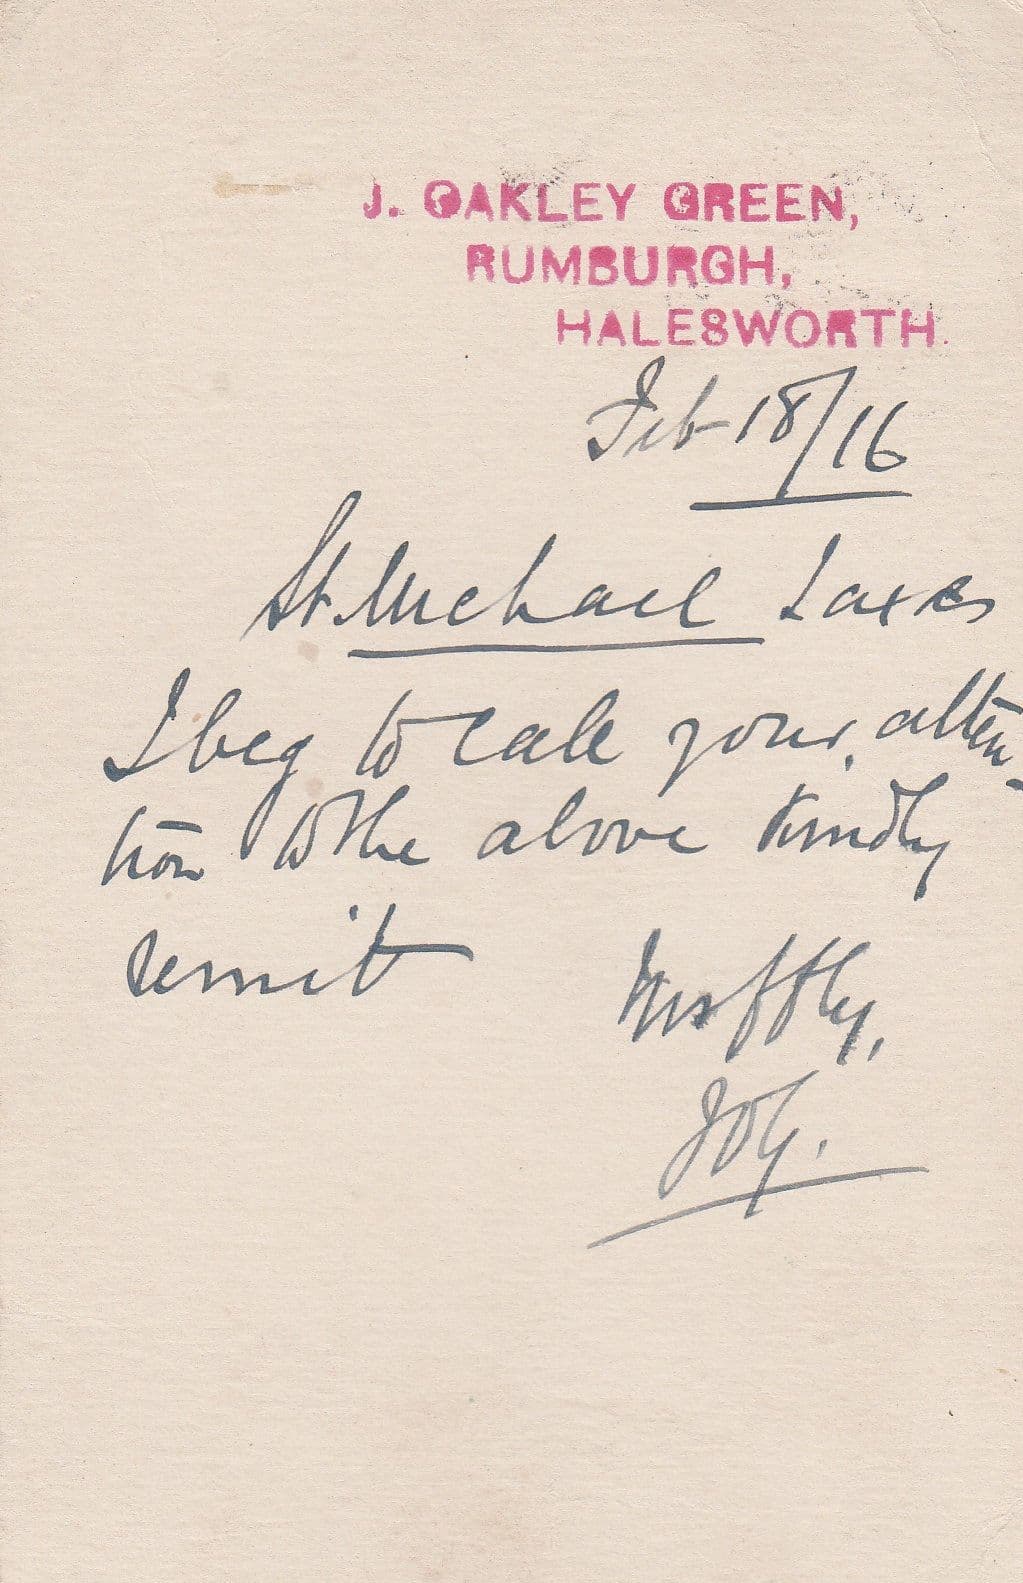 J. OAKLEY GREEN,
RUMBURGH,
HALESWORTH.
Feb 18/16
St. Michael Taxes
I beg to call your atten-
tion to the above Kindly
remit
Yrs ffly,
JOG.